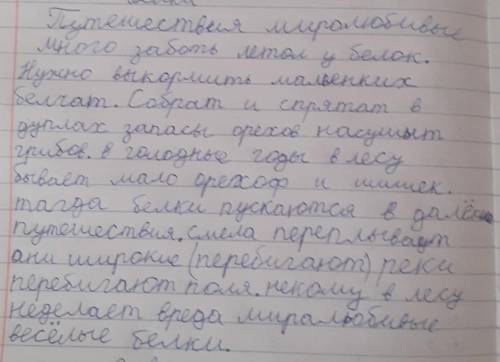 Путешествия миролюбивые
много заботь летом у белок.
Нужно выкормить маленких
белчат. Собрат и спрятат в
дуплах запасы орехов насушыт
грибов. в голодные годы в лесу
бывает мало орехоф и шишек.
тагда белки пускаются в далёкие
путешествия. смела переплывают
ани широкие (перебигают) реки
перебигают поля. некому в лесу
неделает вреда миралюбивые
весёлые белки.